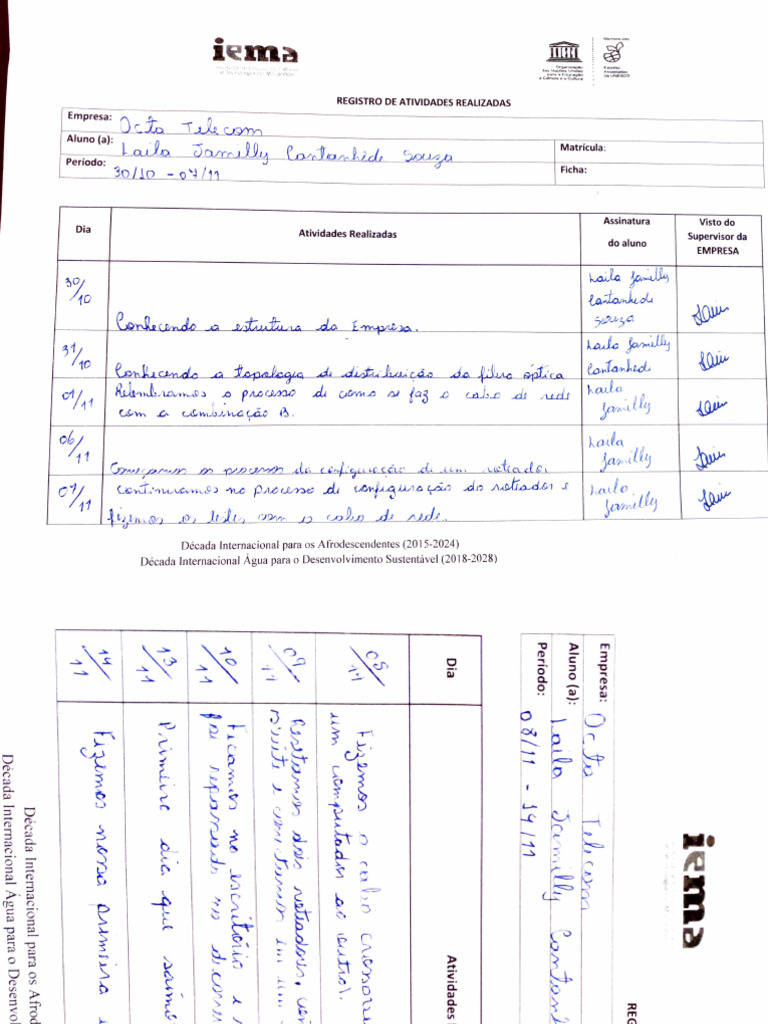 iema
Organização
das Nações Unidas
para a Educação,
a Ciência e a Cultura
Membro das
Escolas
Associadas
da UNESCO
REGISTRO DE ATIVIDADES REALIZADAS
Empresa: Octo Telecom
Aluno (a): Laila Jamilly Cantanhêde Souza
Matrícula:
Período: 30/10 - 07/11
Ficha:
Dia
Atividades Realizadas
Assinatura
do aluno
Visto do
Supervisor da
EMPRESA
30/10
Conhecendo a estrutura da Empresa.
Laila Jamilly
Cantanhede
Souza
31/10
Conhecendo a topologia de distribuição da fibra óptica
Laila Jamilly
Cantanhede
01/11
Relembramos o processo de como se faz o cabo de rede
com a combinação B.
Laila
Jamilly
06/11
Começamos o processo da configuração de um roteador
Laila
Jamilly
07/11
continuamos no processo de configuração do roteador e
fizemos os testes com o cabo de rede.
Laila
Jamilly
Década Internacional para os Afrodescendentes (2015-2024)
Década Internacional Água para o Desenvolvimento Sustentável (2018-2028)
iema
REG
Empresa: Octo Telecom
Aluno (a): Laila Jamilly Cantan
Período: 08/11 - 14/11
Dia
Atividades
08/11
Fizemos o cabo
um computador ao outro).
09/11
Resetamos dois roteadores,
10/11
Ficamos no escritório e
foi repassado
13/11
Primeiro dia que saímo
14/11
Fizemos nossa primeira
Década Internacional para os Afrod
Década Internacional Água para o Desenvol